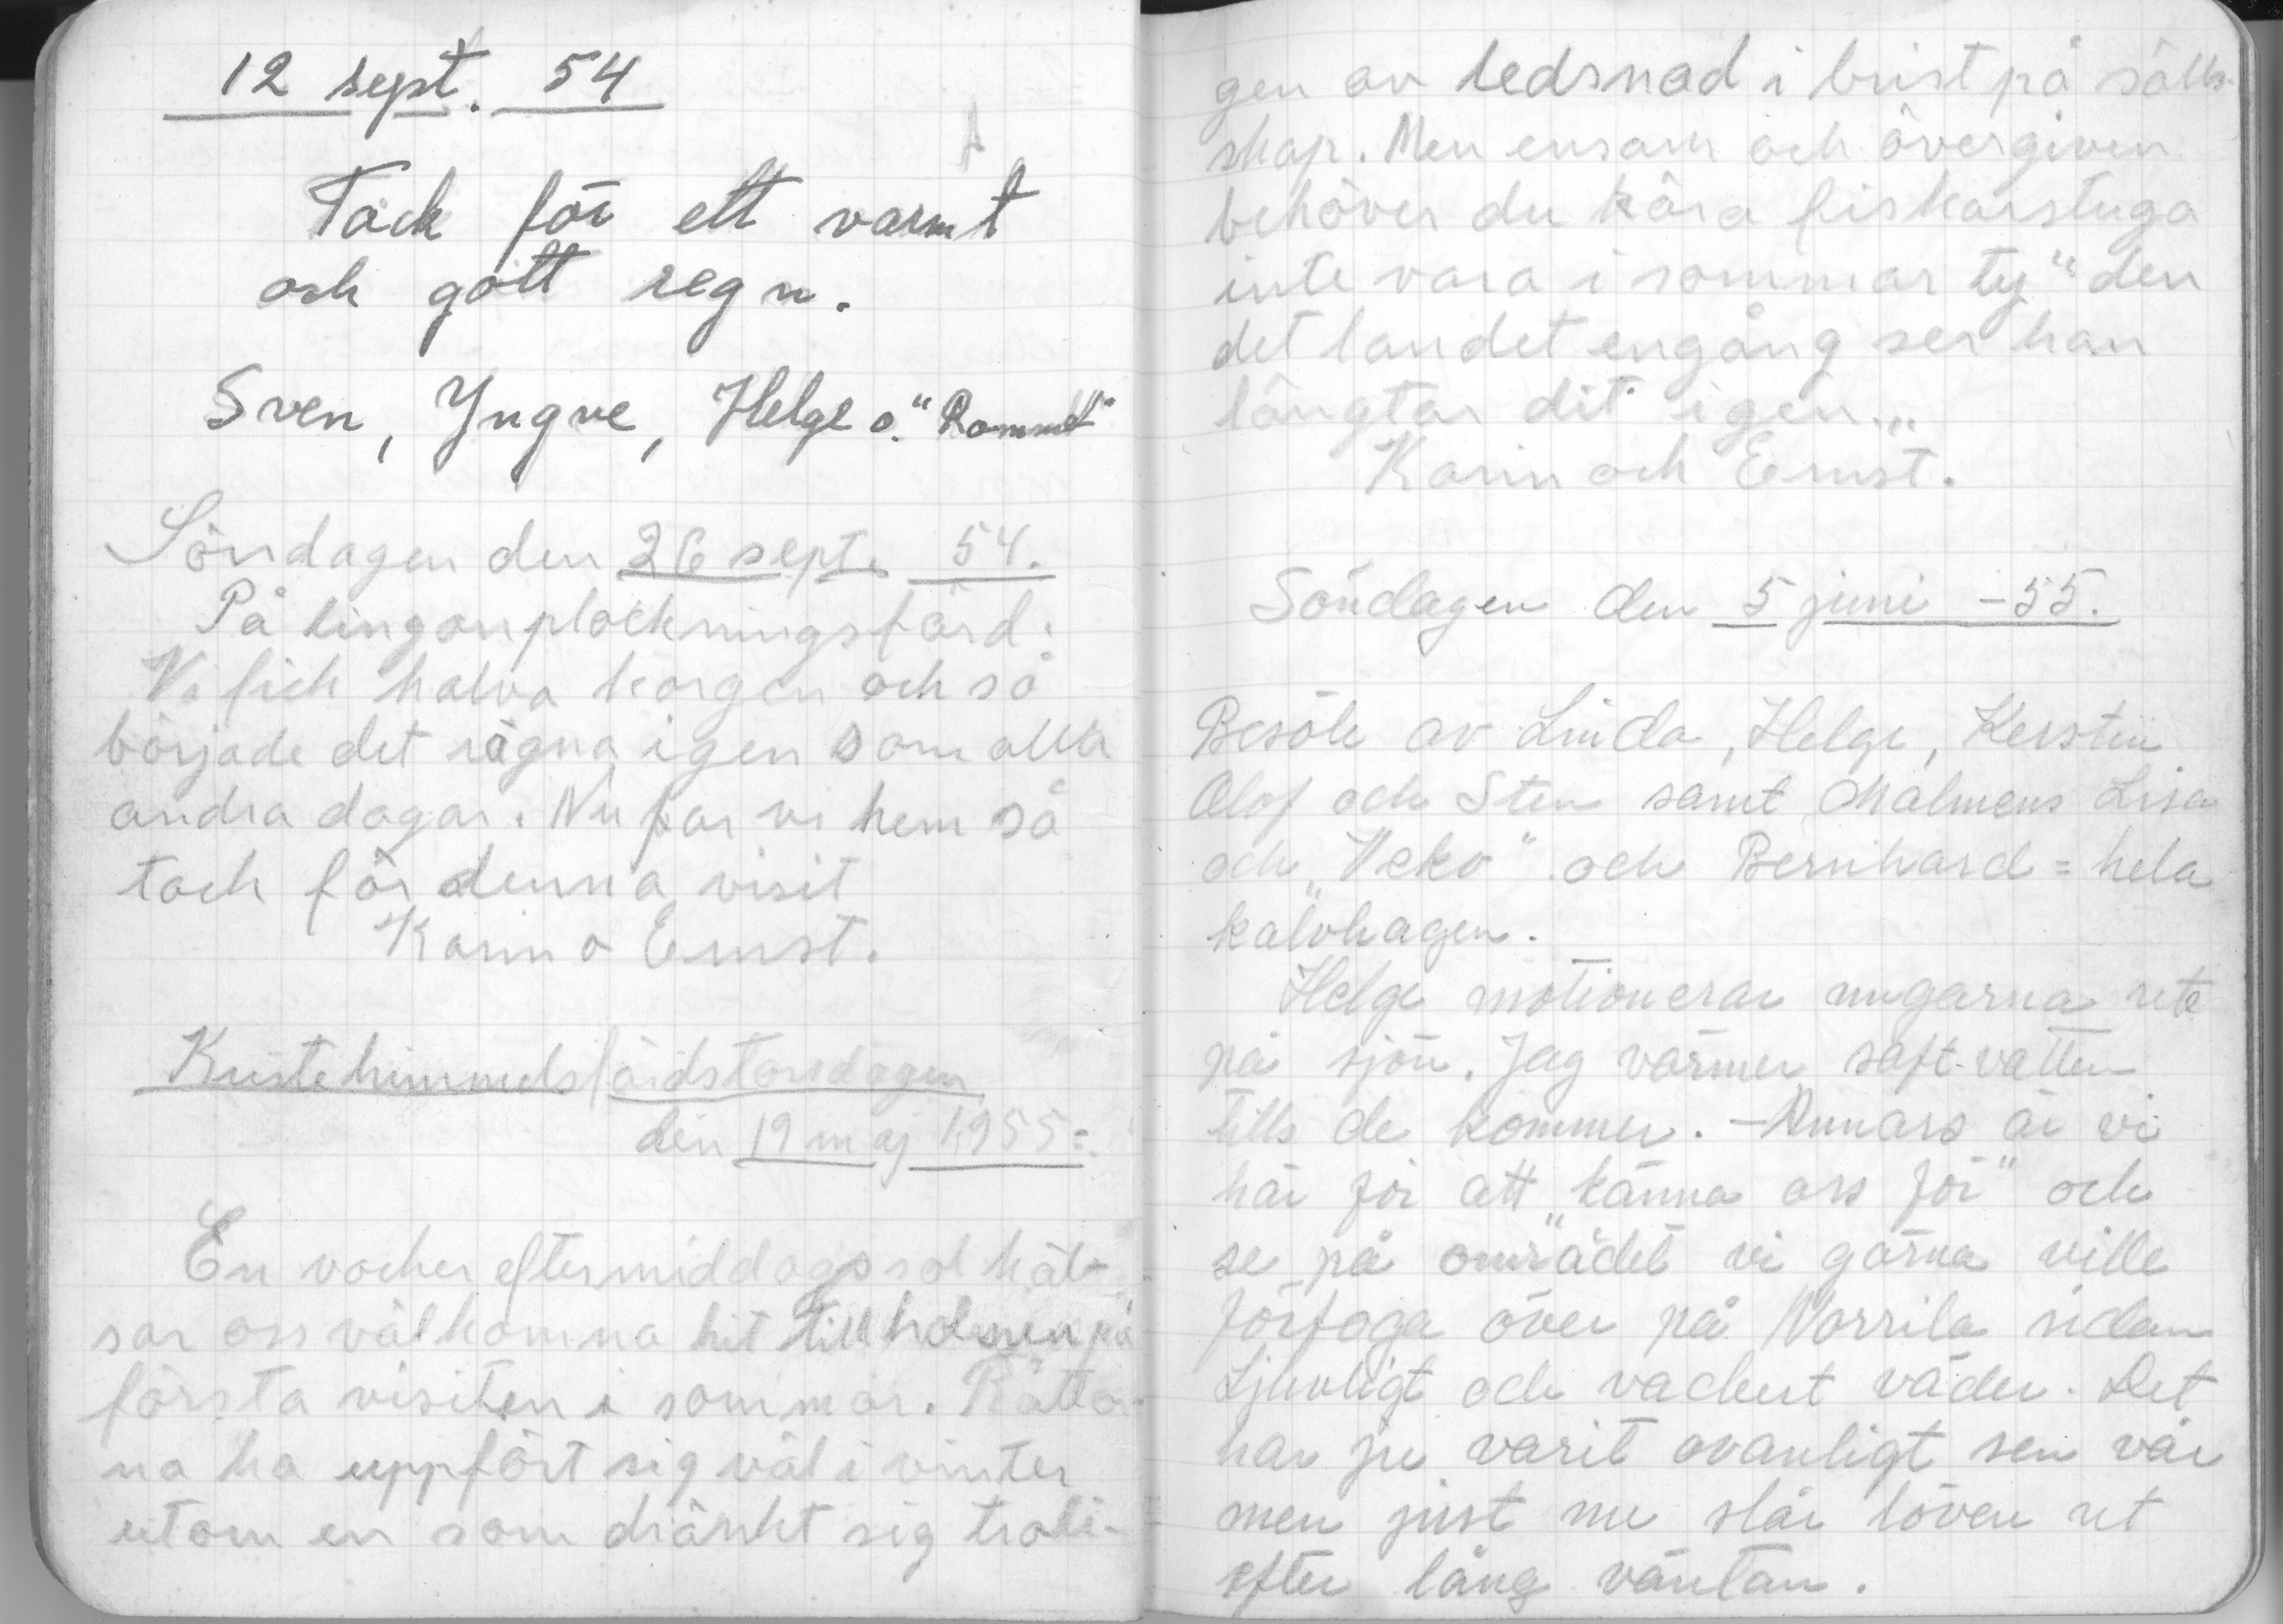 12 sept. 54
Tack för ett varmt
och gott regn.
Sven, Yngve, Helge o. "Rommet"
Söndagen den 26 sept. 54.
På lingonplockningsfärd:
Vi fick halva korgen och så
började det rägna igen som alla
andra dagar. Nu far vi hem så
tack för denna visit
Karin o Ernst.
Kristehimmelsfärdstorsdagen
den 19 maj 1955:.
En vacker eftermiddagssol häl-
sar oss välkomna hit till holmen på
första visiten i sommar. Råttor-
na ha uppfört sig väl i vinter
utom en som dränkt sig troli-
gen av ledsnad i brist på sälls-
skap. Men ensam och övergiven
behöver du kära fiskarstuga
inte vara i sommar ty "den
det landet engång ser han
längtar dit igen..."
Karin och Ernst.
Söndagen den 5 juni -55.
Besök av Linda, Helge, Kerstin
Olof och Sten samt Malmens Lisa
och "Veko" och Bernhard = hela
kalvhagen.
Helge motionerar ungarna ute
på sjön. Jag värmer saft-vatten
tills de kommer. - Annars är vi
här för att "känna oss för" och
se på området vi gärna ville
förfoga över på Norrila sidan
Ljuvligt och vackert väder. Det
har ju varit ovanligt sen vår
men just nu slår löven ut
efter lång väntan.